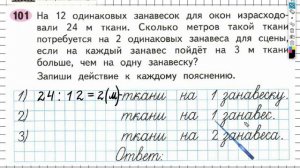 101
На 12 одинаковых занавесок для окон израсходо-
вали 24 м ткани. Сколько метров такой ткани
потребуется на 2 одинаковых занавеса для сцены,
если на каждый занавес пойдёт на 3 м ткани
больше, чем на одну занавеску?
Запиши действие к каждому пояснению.
1) 24 : 12 = 2 (м)- ткани на 1 занавеску.
2) ткани на 1 занавес.
3) ткани на 2 занавеса.
Ответ: